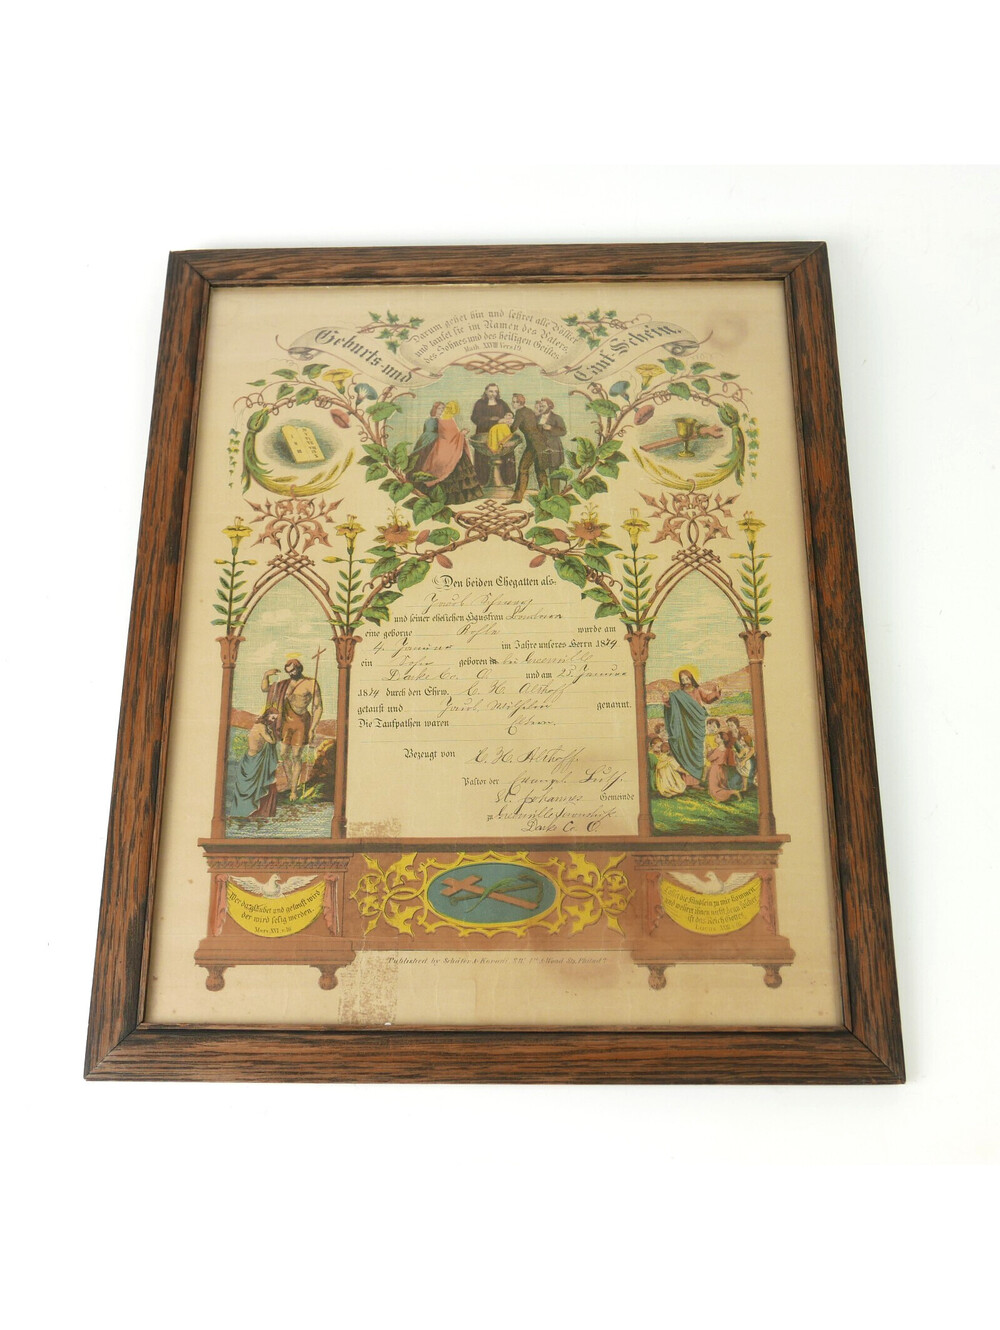 Darum gehet hin und lehret alle Völker
und taufet sie im Namen des Vaters,
des Sohnes und des heiligen Geistes.
Math. XXVIII Vers 19
Geburts- und Tauf-Schein.
Den beiden Ehegatten als-
Jacob
und seiner ehelichen Hausfrau
eine geborne wurde am
4. Januar im Jahre unseres Herrn 1874
ein Sohn geboren bei Greenville
Darke Co. O. und am 25. Januar
1874 durch den Ehrw. C. H. Althoff
getauft und Jacob Wilhelm genannt.
Die Taufpathen waren Eltern
Bezeugt von C. H. Althoff.
Pastor der Evangel. Luth.
St. Johannes Gemeinde
zu Greenville Township
Darke Co. O.
Wer da glaubet und getauft wird
der wird selig werden.
Marc. XVI, v. 16
Lasset die Kindlein zu mir kommen,
und wehret ihnen nicht denn solcher
ist das Reich Gottes.
Published by Schäfer & Koradi, S.W. Cor. 4th & Wood Sts. Philada.